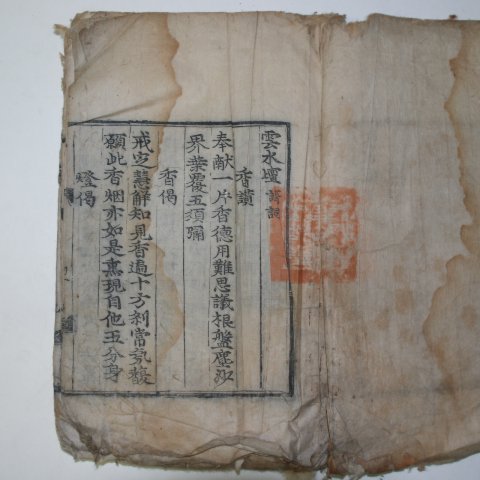 雲水壇
香讚
奉献一片香德用難思議根盤塵沙
界葉覆五須彌
香偈
戒定慧解知見香遍十方刹常氛馥
願此香烟亦如是熏現自他五分身
燈偈